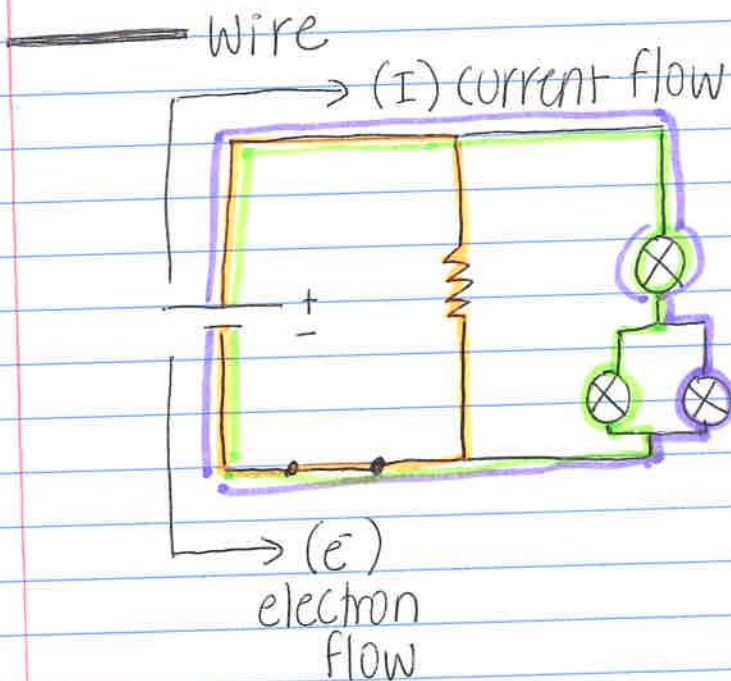 wire
(I) current flow
+
−
(e⁻)
electron
flow